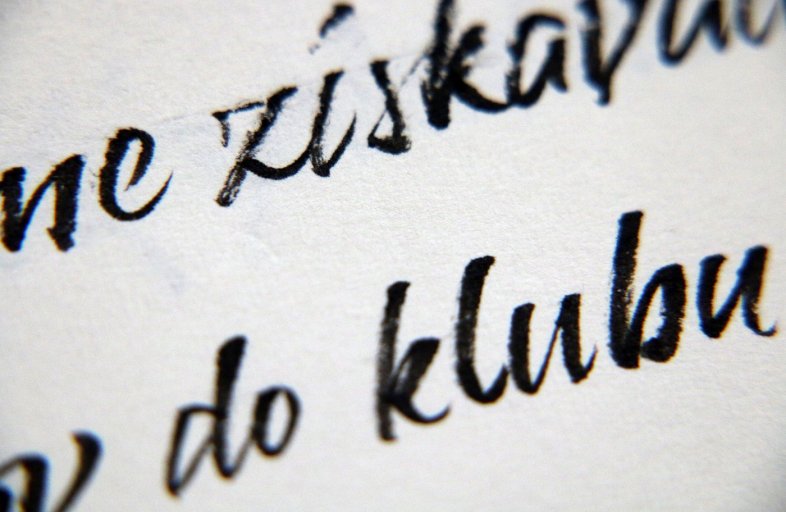 ne získava
v do klubu